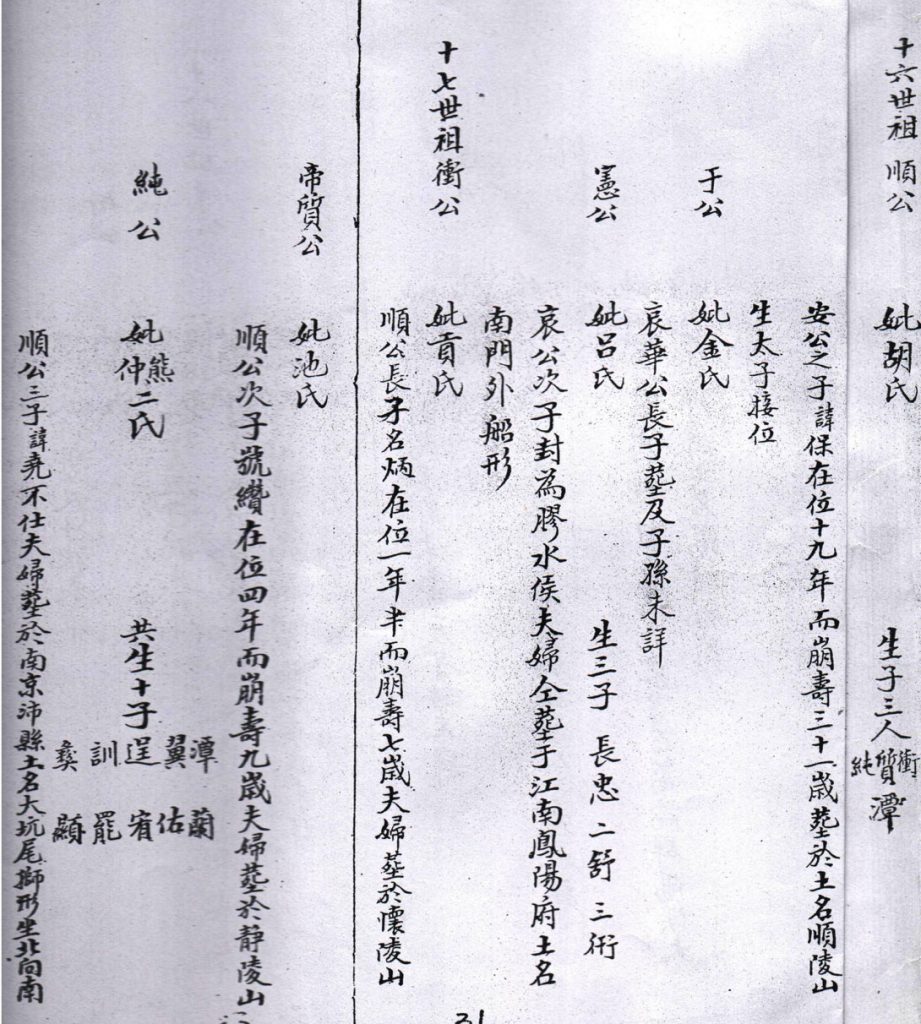 十六世祖 順公 妣胡氏 生子三人 衝 質 純 潭
安公之子諱保在位十九年而崩壽三十一歲墓於土名順陵山
生太子接位
于公 妣金氏
哀華公長子墓及子孫未詳
憲公 妣呂氏 生三子 長忠 二舒 三術
哀公次子封為膠水侯夫婦仝墓于江南鳳陽府土名
南門外船形
十七世祖衝公 妣貢氏
順公長子名炳在位一年半而崩壽七歲夫婦墓於懷陵山
帝質公 妣池氏
順公次子號纘在位四年而崩壽九歲夫婦墓於静陵山
純公 妣熊仲二氏 共生十子 潭 翼 逞 訓 彜 蘭 佑 宥 罷 顯
順公三子諱堯不仕夫婦墓於南京沛縣土名大坑尾獅形坐北向南
31